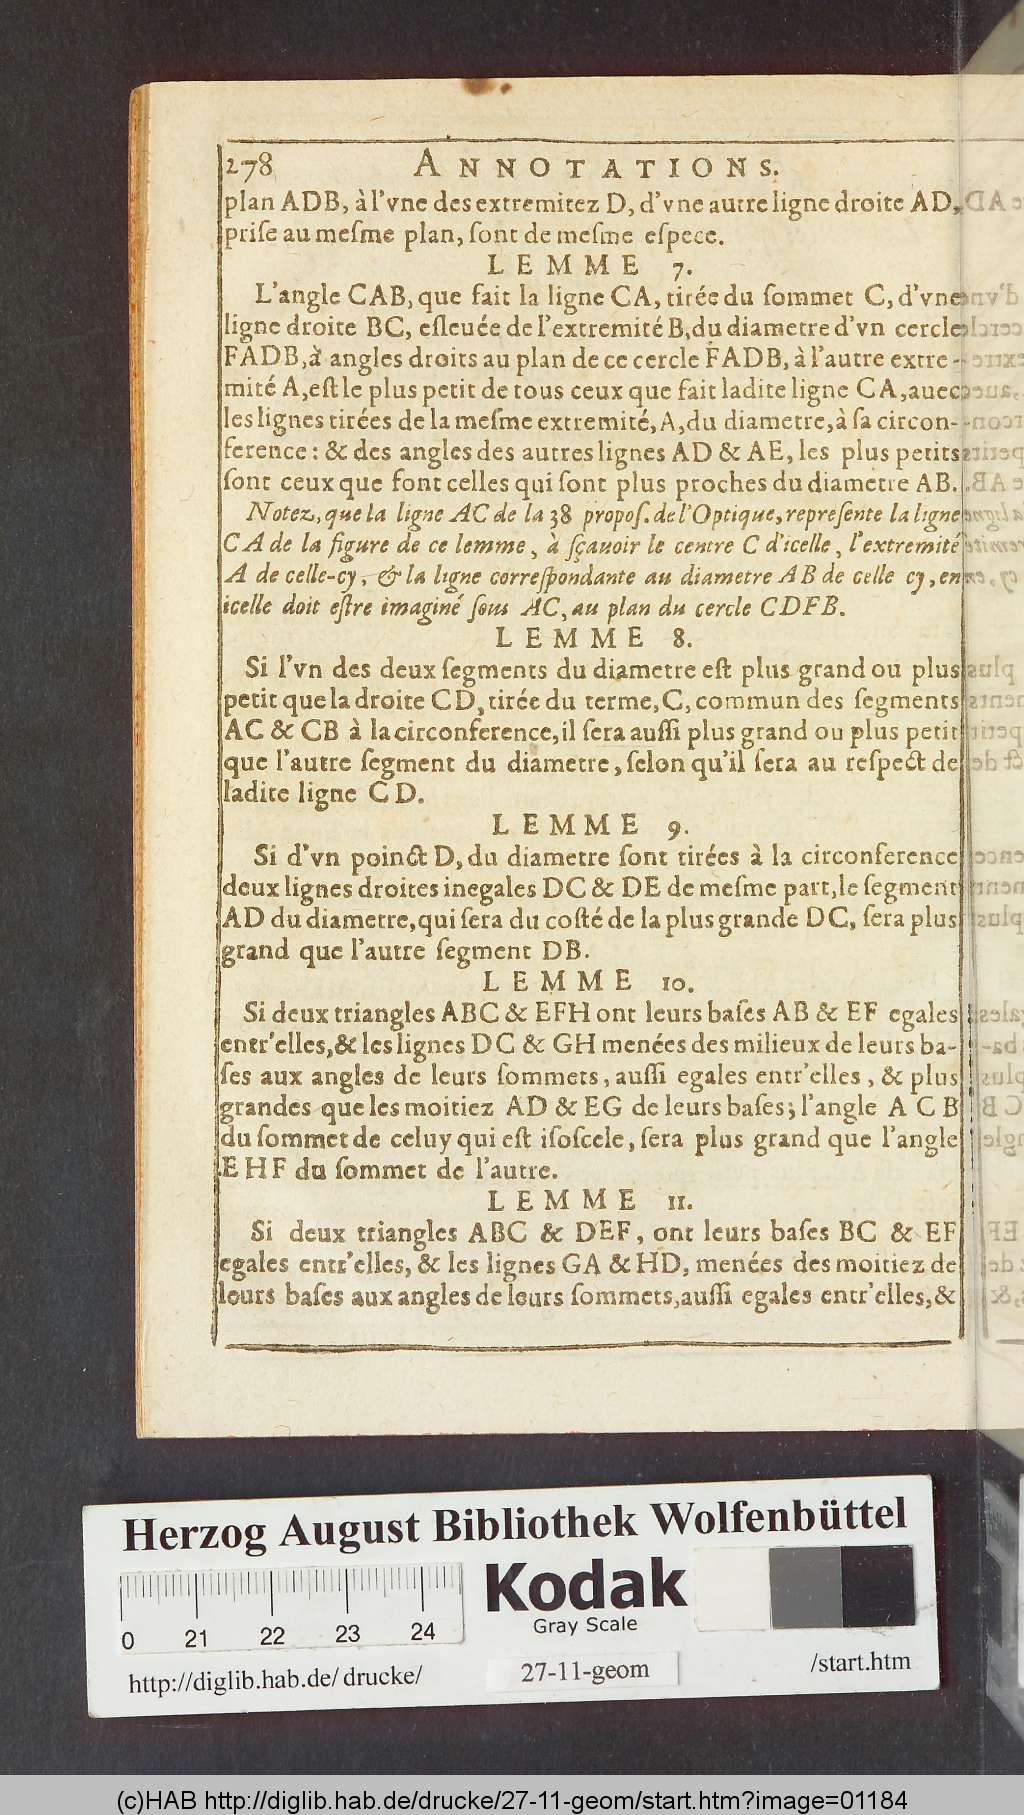 278 ANNOTATIONS.
plan ADB, à l'vne des extremitez D, d'vne autre ligne droite AD,
priſe au meſme plan, ſont de meſme eſpece.
LEMME 7.
L'angle CAB, que fait la ligne CA, tirée du ſommet C, d'vne
ligne droite BC, eſleuée de l'extremité B, du diametre d'vn cercle
FADB, à angles droits au plan de ce cercle FADB, à l'autre extre-
mité A, eſt le plus petit de tous ceux que fait ladite ligne CA, auec
les lignes tirées de la meſme extremité, A, du diametre, à ſa circon-
ference: & des angles des autres lignes AD & AE, les plus petits
ſont ceux que font celles qui ſont plus proches du diametre AB.
Notez, que la ligne AC de la 38 propoſ. de l'Optique, repreſente la ligne
CA de la figure de ce lemme, à ſçauoir le centre C d'icelle, l'extremité
A de celle-cy, & la ligne correſpondante au diametre AB de celle cy, en
icelle doit eſtre imaginé ſous AC, au plan du cercle CDFB.
LEMME 8.
Si l'vn des deux ſegments du diametre eſt plus grand ou plus
petit que la droite CD, tirée du terme, C, commun des ſegments
AC & CB à la circonference, il ſera auſſi plus grand ou plus petit
que l'autre ſegment du diametre, ſelon qu'il ſera au reſpect de
ladite ligne CD.
LEMME 9.
Si d'vn poinct D, du diametre ſont tirées à la circonference
deux lignes droites inegales DC & DE de meſme part, le ſegment
AD du diametre, qui ſera du coſté de la plus grande DC, ſera plus
grand que l'autre ſegment DB.
LEMME 10.
Si deux triangles ABC & EFH ont leurs baſes AB & EF egales
entr'elles, & les lignes DC & GH menées des milieux de leurs ba-
ſes aux angles de leurs ſommets, auſſi egales entr'elles, & plus
grandes que les moitiez AD & EG de leurs baſes; l'angle ACB
du ſommet de celuy qui eſt iſoſcele, ſera plus grand que l'angle
EHF du ſommet de l'autre.
LEMME 11.
Si deux triangles ABC & DEF, ont leurs baſes BC & EF
egales entr'elles, & les lignes GA & HD, menées des moitiez de
leurs baſes aux angles de leurs ſommets, auſſi egales entr'elles, &
Herzog August Bibliothek Wolfenbüttel
Kodak
Gray Scale
0 21 22 23 24
http://diglib.hab.de/ drucke/ 27-11-geom /start.htm
(c)HAB http://diglib.hab.de/drucke/27-11-geom/start.htm?image=01184